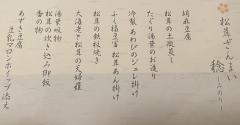 松茸ざんまい 稔
みのり
胡麻豆腐
松茸の土瓶蒸し
たぐり湯葉のお造り
冷製 あわびのジュレ掛け
ふく福豆冨 松茸あん掛け
松茸の鉄板焼き
大海老と松茸の天婦羅
湯葉吸物
松茸の炊き込み御飯
香の物
あずき豆腐
豆乳マロンホイップ添え